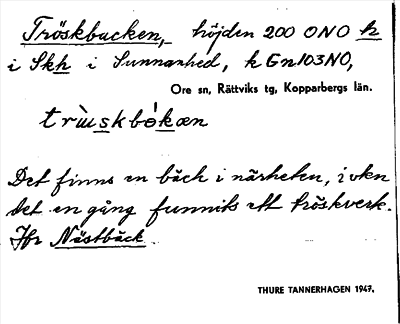 Tröskbacken, höjden 200 ONO k
i Skh i Sunnanhed, k Gn103NO,
Ore sn, Rättviks tg, Kopparbergs län.
trùskbókæn
Det finns en bäck i närheten, i vken
det en gång funnits ett tröskverk.
Jfr Nästbäck
THURE TANNERHAGEN 1947.